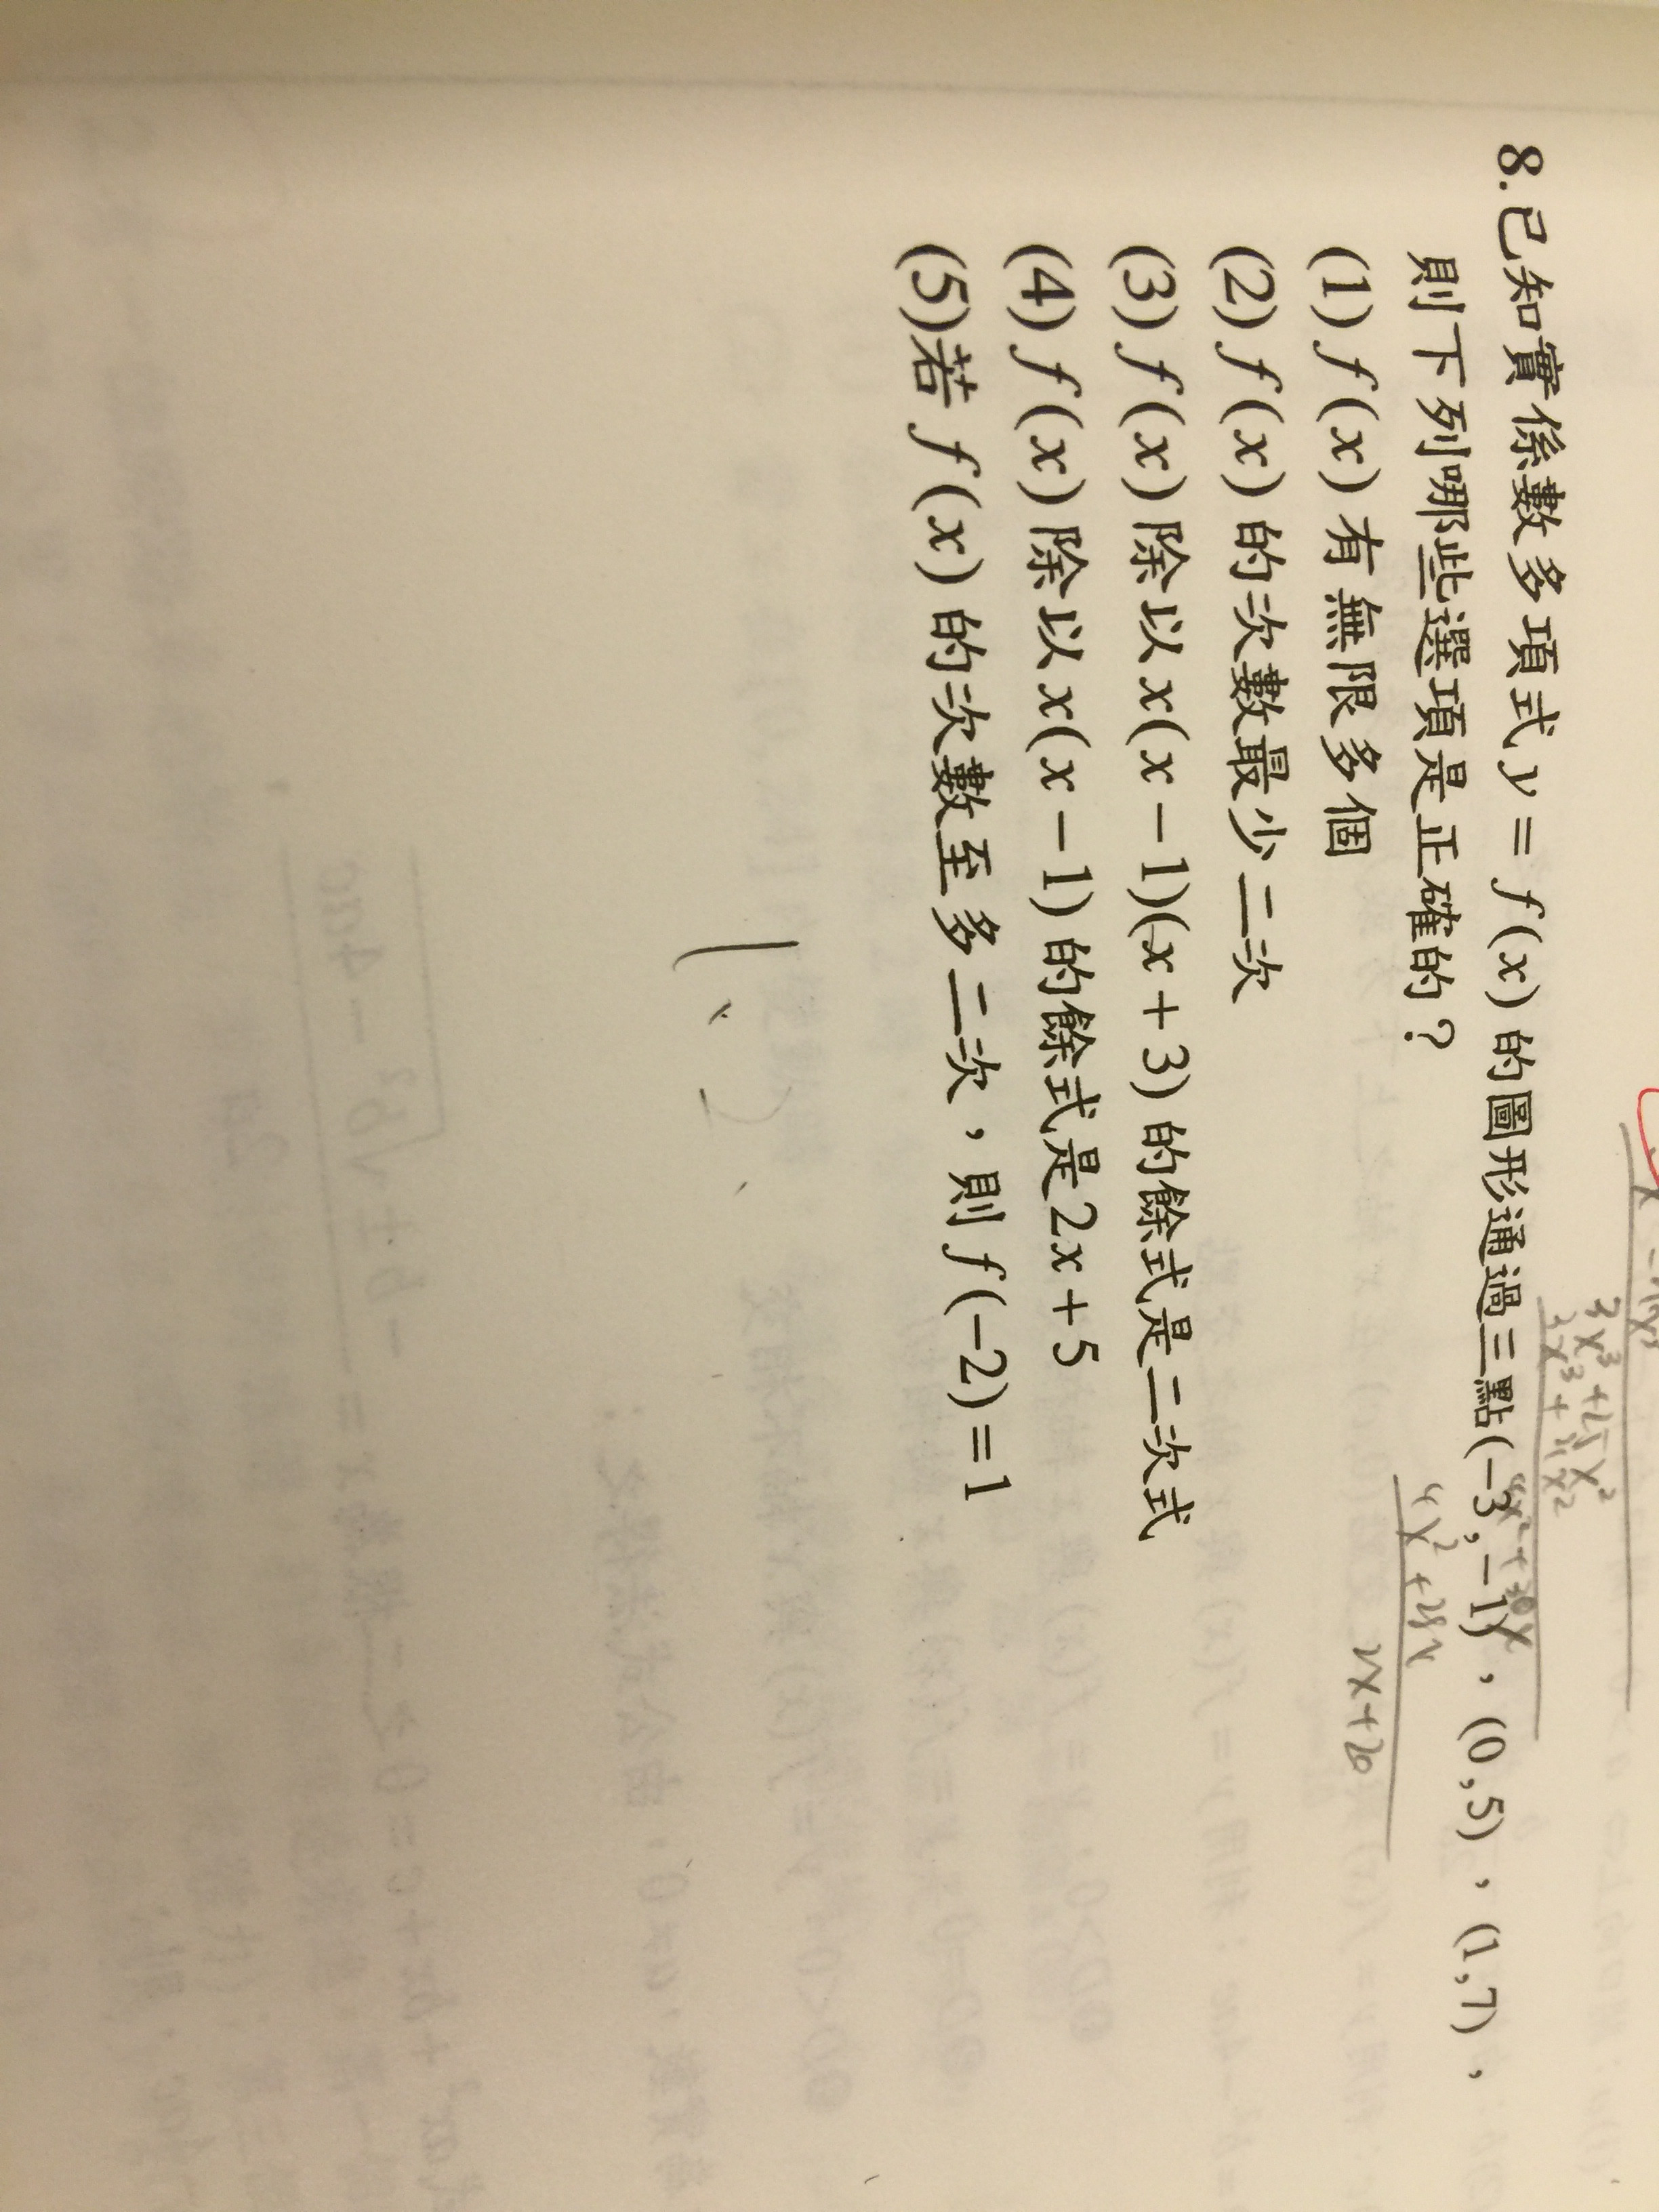 8.已知實係數多項式 y = f(x) 的圖形通過三點(-3,-1),(0,5),(1,7),
則下列哪些選項是正確的?
(1) f(x) 有無限多個
(2) f(x) 的次數最少二次
(3) f(x) 除以 x(x-1)(x+3) 的餘式是二次式
(4) f(x) 除以 x(x-1) 的餘式是 2x+5
(5)若 f(x) 的次數至多二次,則 f(-2)=1
3x³+25x²
4x²+28x
2x+20